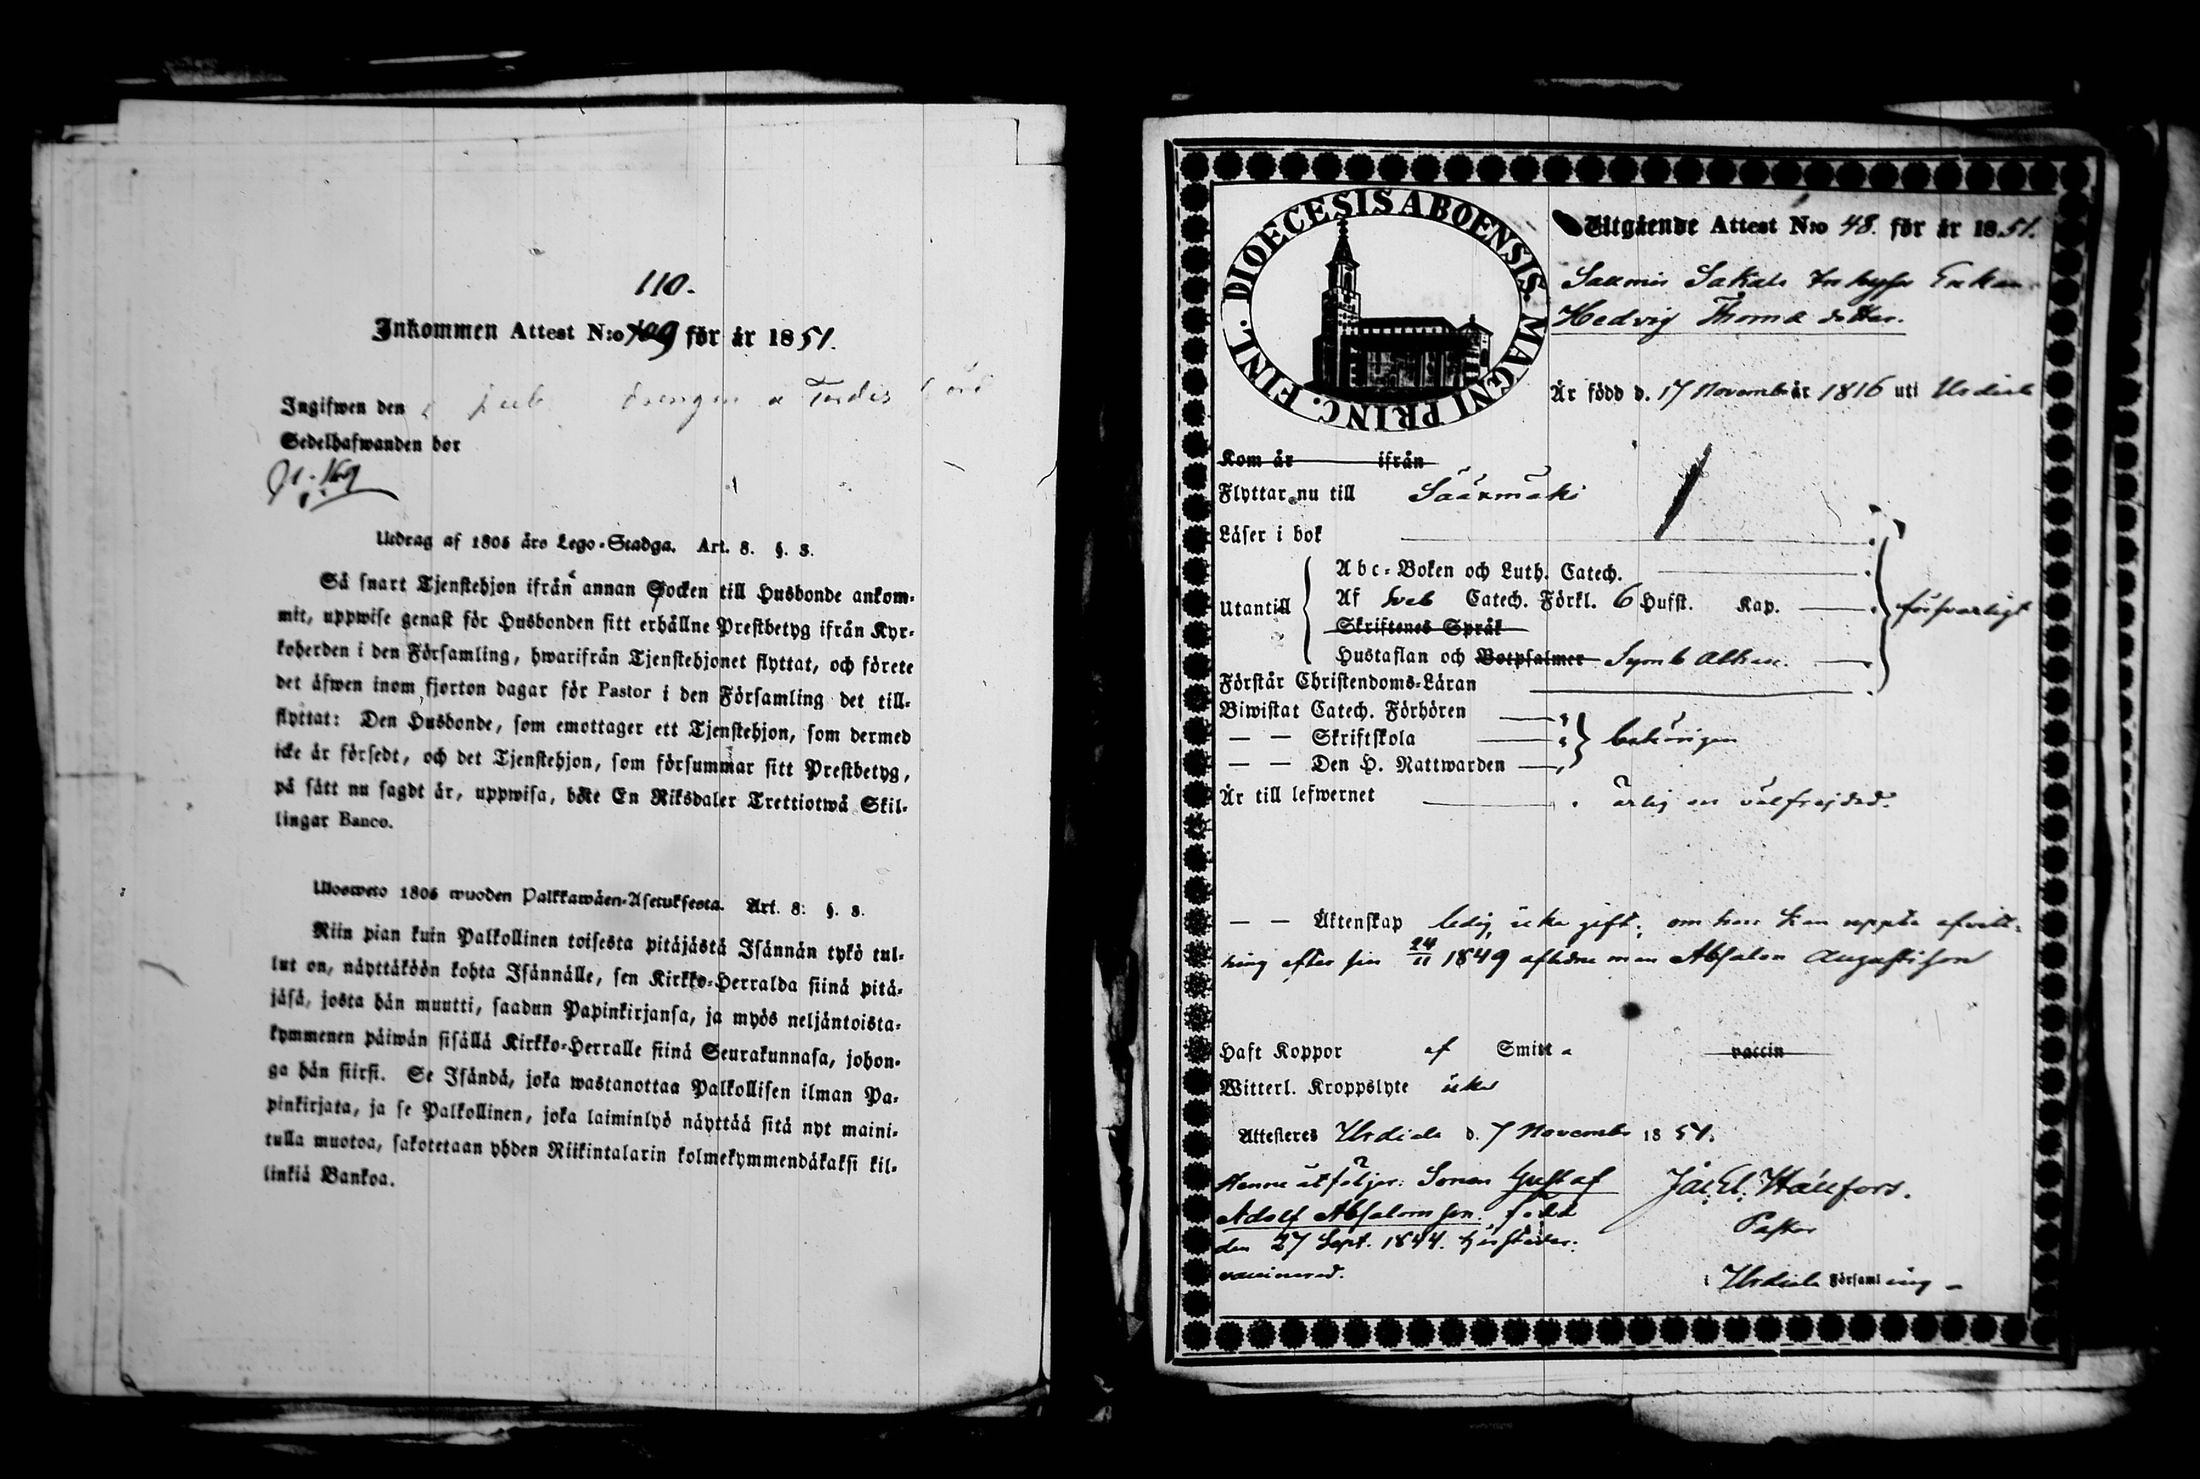 110.
Inkommen Attest N:o 109 för år 1851.
Ingifwen den
Sedelhafwanden bor
Utdrag af 1805 års Lego-Stadga. Art. 8. §. 3.
Så snart Tjenstehjon ifrån annan Socken till Husbonde ankom-
mit, uppwise genast för Husbonden sitt erhållne Prestbetyg ifrån Kyr-
koherden i den Församling, hwarifrån Tjenstehjonet flyttat, och förete
det äfwen inom fjorton dagar för Pastor i den Församling det till-
flyttat: Den Husbonde, som emottager ett Tjenstehjon, som dermed
icke är försedt, och det Tjenstehjon, som försummar sitt Prestbetyg,
på sätt nu sagdt är, uppwisa, böte En Riksdaler Trettiotwå Skil-
lingar Banco.
Ulosweto 1805 wuoden Palkkawäen-Asetuksesta. Art. 8: §. 3.
Niin pian kuin Palkollinen toisesta pitäjästä Isännän tykö tul-
lut on, näyttäköön kohta Isännälle, sen Kirkko-Herralda siinä pitä-
jäsä, josta hän muutti, saadun Papinkirjansa, ja myös neljäntoista-
kymmenen päiwän sisällä Kirkko-Herralle siinä Seurakunnasa, johon-
ga hän siirsi. Se Isändä, joka wastanottaa Palkollisen ilman Pa-
pinkirjata, ja se Palkollinen, joka laiminlyö näyttää sitä nyt maini-
tulla muotoa, sakotetaan yhden Riikintalarin kolmekymmendäkaksi kil-
linkiä Bankoa.
DIOECESIS ABOENSIS. MAGNI PRINC. FINL.
Utgående Attest N:o 48. för år 1851.
Enkan
Hedvig Thomæ dotter.
Är född d. 17 November år 1816 uti Urdiala
Kom år ifrån
Flyttar nu till Säärmäki
Läser i bok
Utantill
Abc-Boken och Luth. Catech.
Af Sveb Catech. Förkl. 6 Hufst. Kap.
försvarligt
Skriftenes Språk
Hustaflan och Botpsalmer Symb Athan.
Förstår Christendoms-Läran
Biwistat Catech. Förhören
— — Skriftskola
behörigen
— — Den H. Nattwarden
Är till lefwernet ärlig och välfrejdad.
— — Äktenskap ledig, icke gift; om hon kan uppte afvitt-
ring efter sin 24/11 1849 aflidne man Absalon Augustsson
Haft Koppor af Smitta vaccin
Witterl. Kroppslyte icke
Attesteras Urdiala d. 7 November 1851.
Henne åtföljer: Sonen Gustaf
Adolf Absalomsson född
den 27 Sept. 1844. härstädes:
vaccinerad.
Pastor
i Urdiala Församling